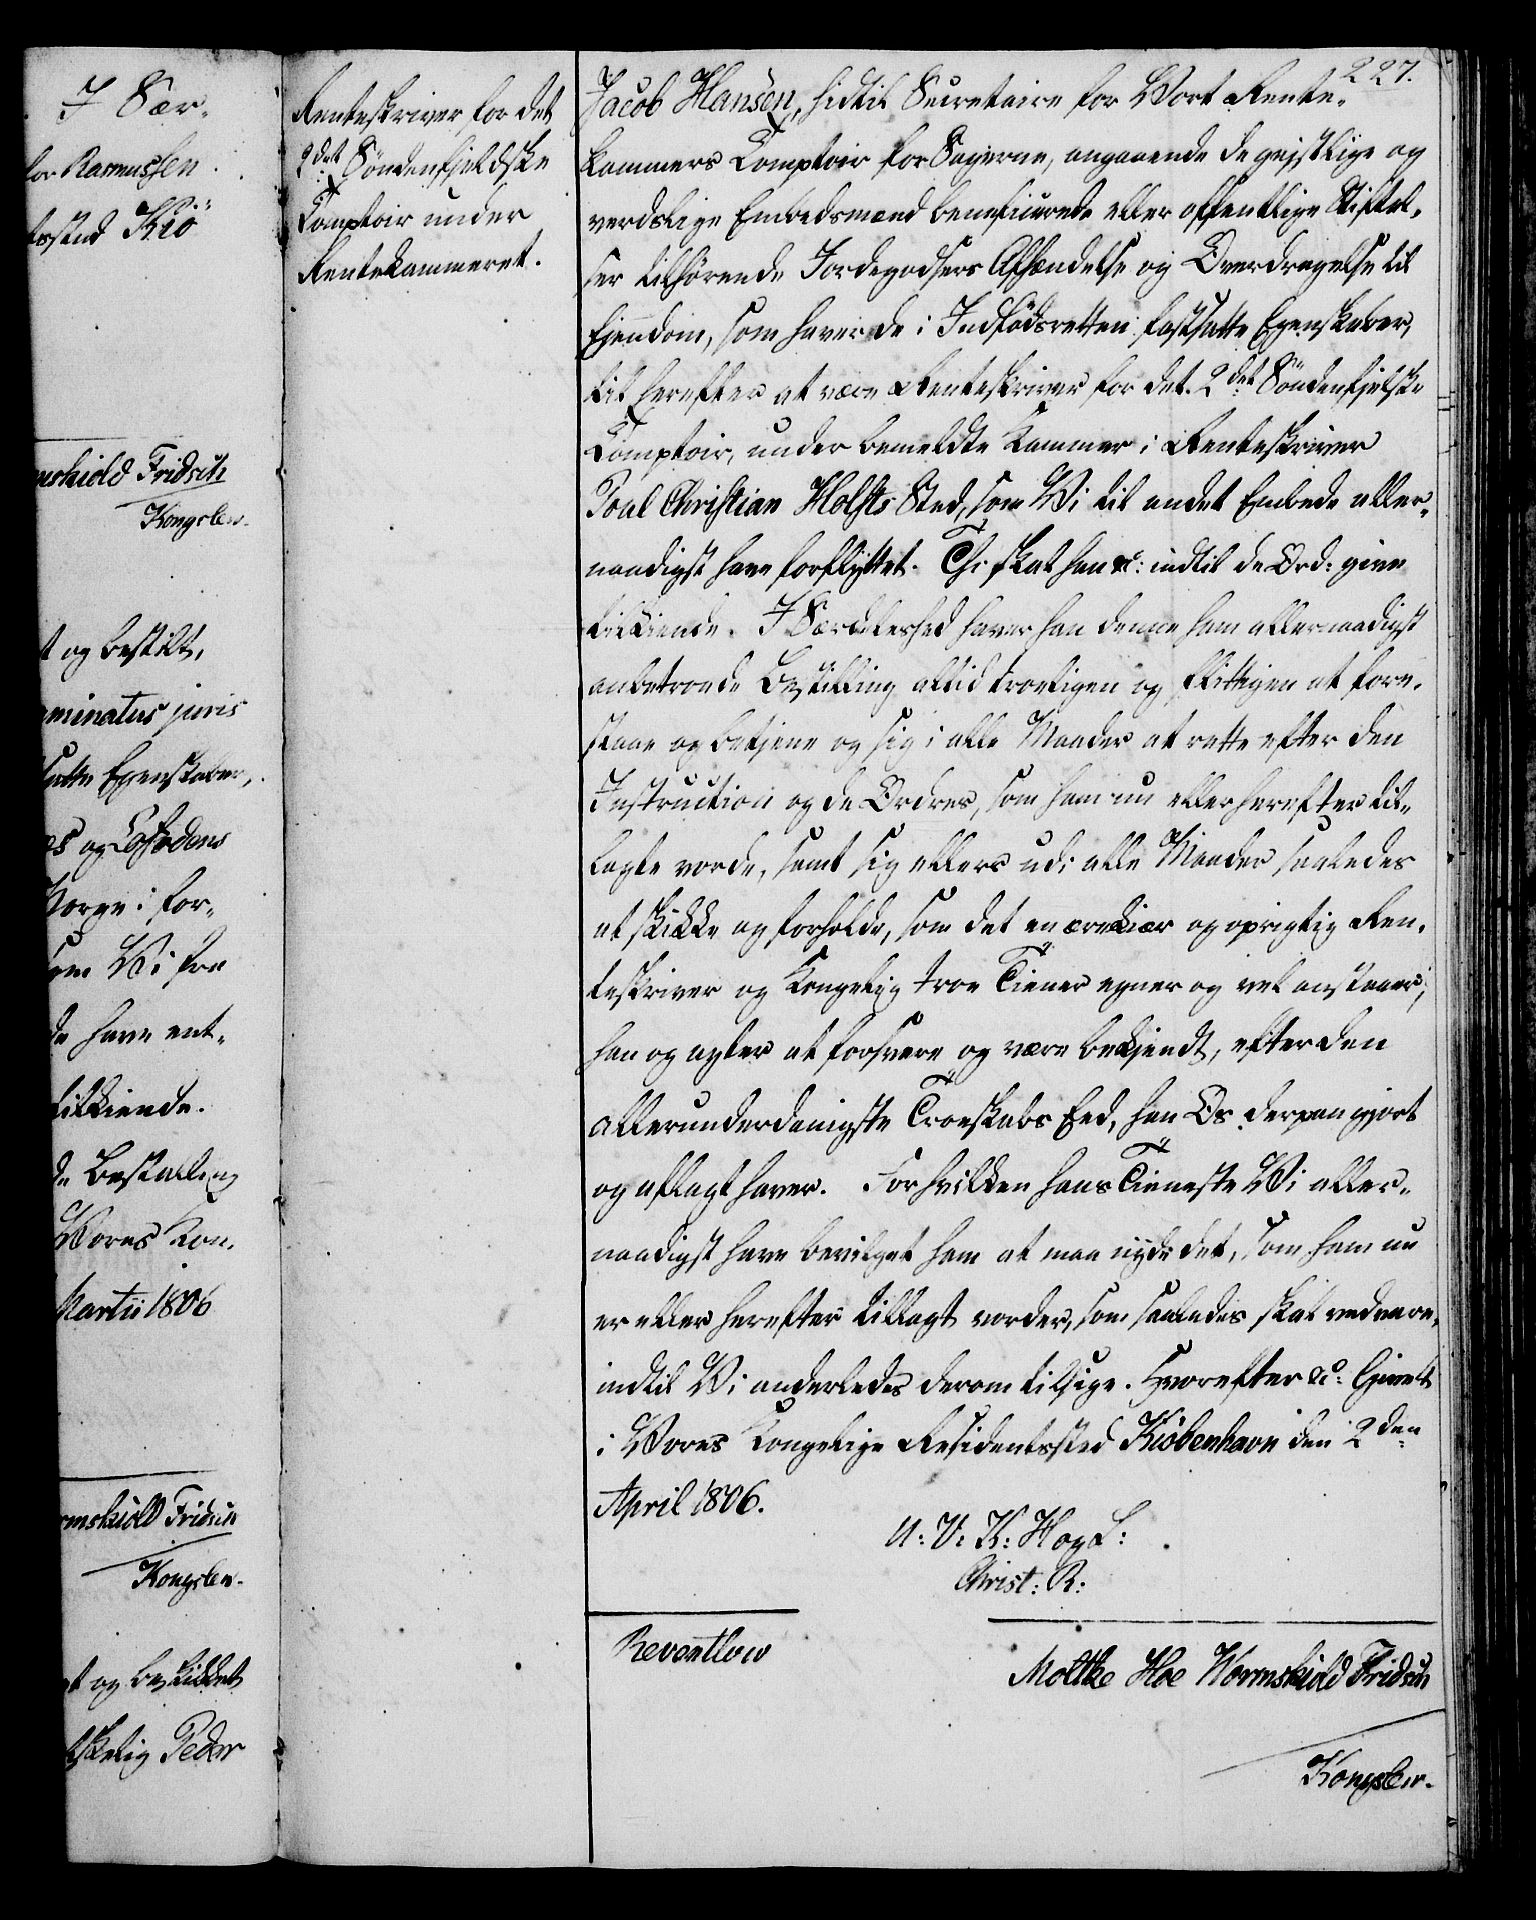 I Sær-
for Rasmussen
tsstad Kiö-
mskiold Fridsch
Kongslew.
t og bestilt,
minatus juris
satte Egenskaber,
es og Lofodens
Norge i for-
Vi fra
de have ent-
tilkiende.
de Bestalling
Vores Kon-
Martii 1806
rmskiold Fridsch
Kongslew.
t og beskikket
Peder
Renteskriver for det
2det Söndenfjeldske
Comptoir under
Rentekammeret.
227.
Jacob Hansen, hidtil Secretaire for Vort Rente-
kammers Comptoir for Sagerne, angaaende de geistlige og
verdslige Embedsmænd beneficerede eller offentlige Stiftel-
ser tilhörende Jordegodsers Afhændelse og Overdragelse til
Ejendom, som haver de i Indfödsretten fastsatte Egenskaber,
til herefter at være Renteskriver for det 2det Söndenfjelske
Comptoir, under bemeldte Kammer i Renteskriver
Poul Christian Holsts Sted, som Vi til andet Embede aller-
naadigst have forflyttet. Thi skal han &c: indtil de Ord: give
tilkiende. I Særdeleshed haver han denne ham allernaadigst
anbetroede Bestilling altid troeligen og flittigen at fore-
staae og betjene og sig i alle Maader at rette efter den
Instruction og de Ordres, som ham nu eller herefter til-
lagte vorde, samt sig ellers udi alle Maader saaledes
at skikke og forholde, som det en ærekiær og oprigtig Ren-
teskriver og Kongelig troe Tiener egner og vel anstaaer,
han og agter at forsvare og være bekjendt, efter den
allerunderdanigste Troeskabs Eed, han Os derpaa gjort
og aflagt haver. For hvilken hans Tieneste Vi aller-
naadigst have bevilget ham at maa nyde det, som ham nu
er eller herefter tillagt vorder, som saaledes skal vedvare,
indtil Vi anderledes derom tilsige. Hvorefter &c: Givet
i Vores Kongelige Residentsstad Kiöbenhavn den 2den
April 1806.
U: V: K: H og S:
Christ: R:
Reventlow
Moltke Hoe Wormskiold Fridsch
Kongslew.